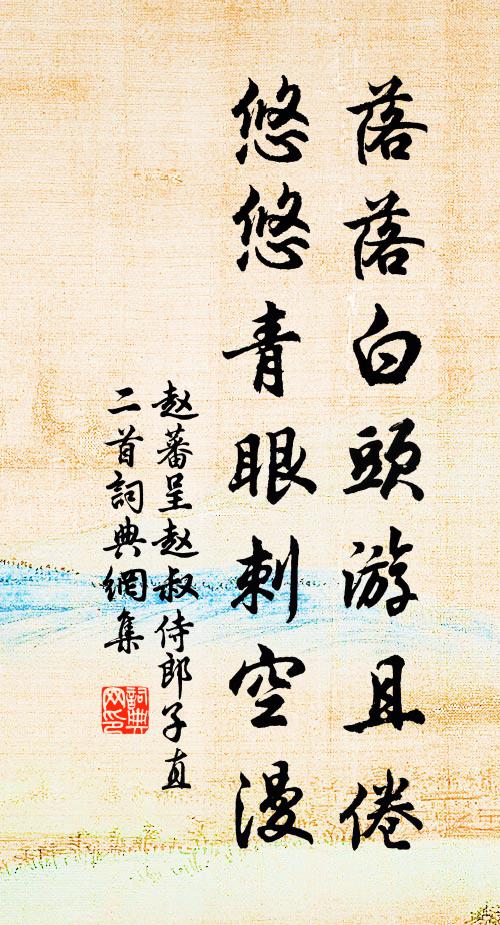 落落白頭游且倦
悠悠青眼刺空漫
赵蕃呈赵叔侍郎子直
二首詞典網集
詞典
网印